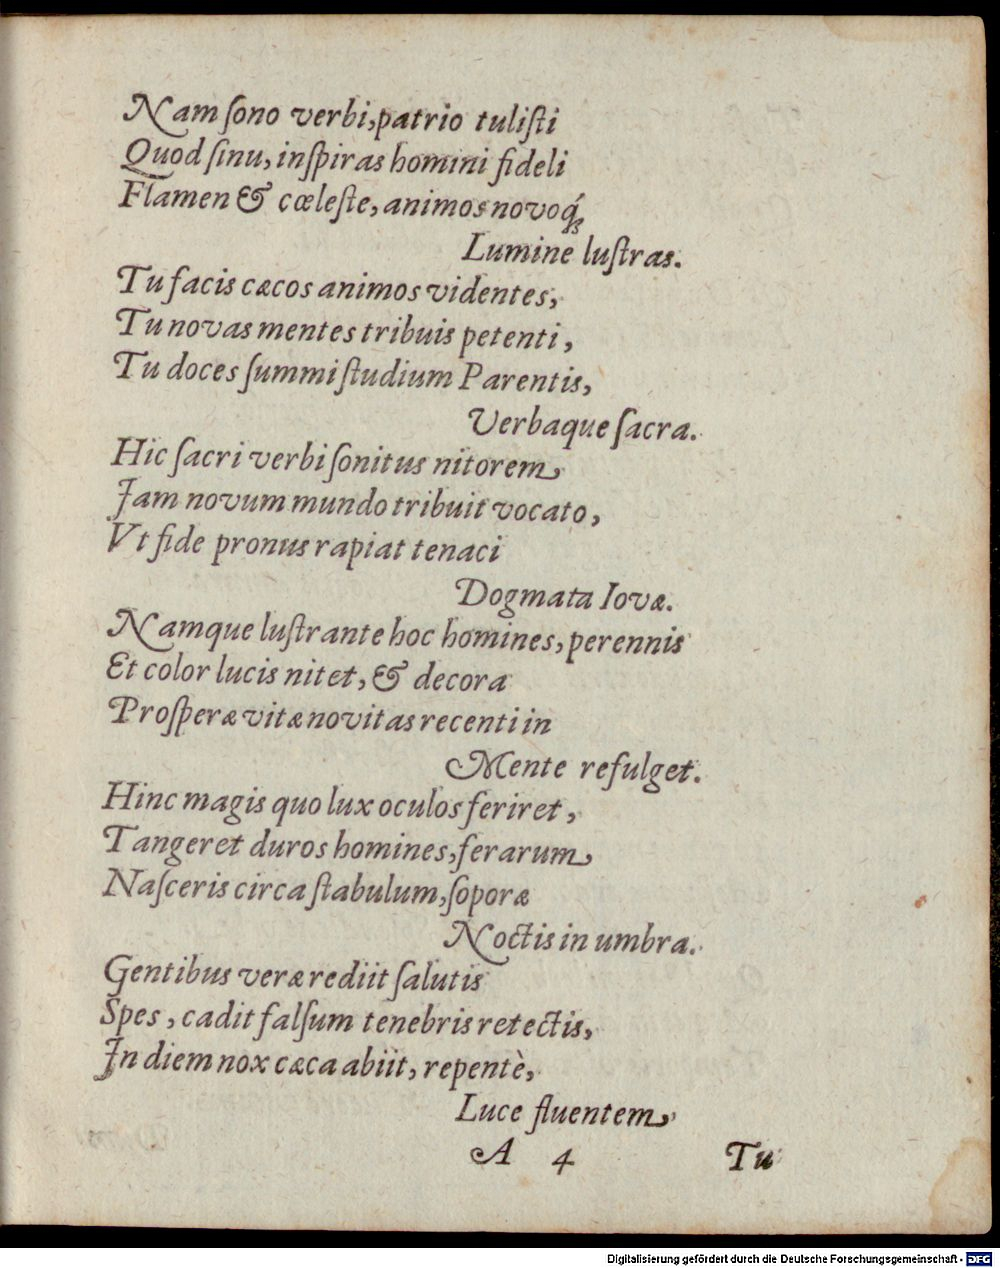 Nam ſono verbi, patrio tuliſti
Quod ſinu, inſpiras homini fideli
Flamen & cœleſte, animos novoq́;
Lumine luſtras.
Tu facis cæcos animos videntes,
Tu novas mentes tribuis petenti,
Tu doces ſummi ſtudium Parentis,
Verbaque ſacra.
Hic ſacri verbi ſonitus nitorem
Jam novum mundo tribuit vocato,
Vt fide pronus rapiat tenaci
Dogmata Iovæ.
Namque luſtrante hoc homines, perennis
Et color lucis nitet, & decora
Proſperæ vitæ novitas recenti in
Mente refulget.
Hinc magis quo lux oculos feriret,
Tangeret duros homines, ferarum
Naſceris circa ſtabulum, ſoporæ
Noctis in umbra.
Gentibus veræ rediit ſalutis
Spes, cadit falſum tenebris retectis,
In diem nox cæca abiit, repentè,
Luce fluentem,
A 4 Tu
Digitalisierung gefördert durch die Deutsche Forschungsgemeinschaft - DFG